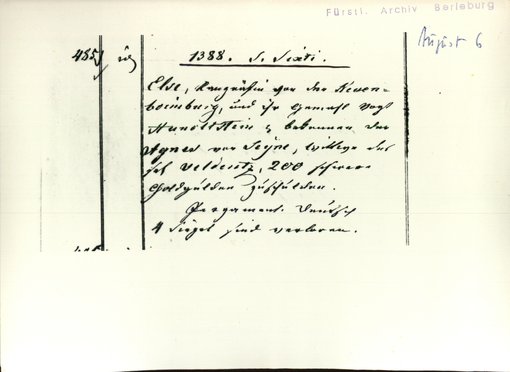 Fürstl. Archiv Berleburg
August 6
485
1388. S. Sixti.
Else, Raugräfin von der Neuen-
beimburg, und ihr Gemahl Vogt
Hunoltstein, bekennen der
Agnes von Seyne, Wittwe des
Veldentz, 200 schwere
Goldgulden zu schulden.
Pergament. Deutsch
4 Siegel sind verloren.